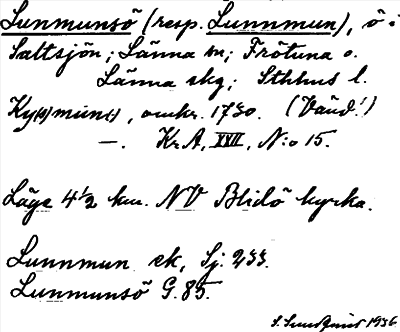 Lunmunsö (resp. Lunnmun), ö i
Saltsjön; Länna sn; Frötuna o.
Länna skg; Sthlms l.
Ky(s)mun(s), omkr. 1730. (Vänd!)
—. Kr A, XVII, N:o 15.
Läge 4½ km. NV Blidö kyrka.
Lunnmun ek, Sj. 233.
Lunmunsö G. 85.
1936